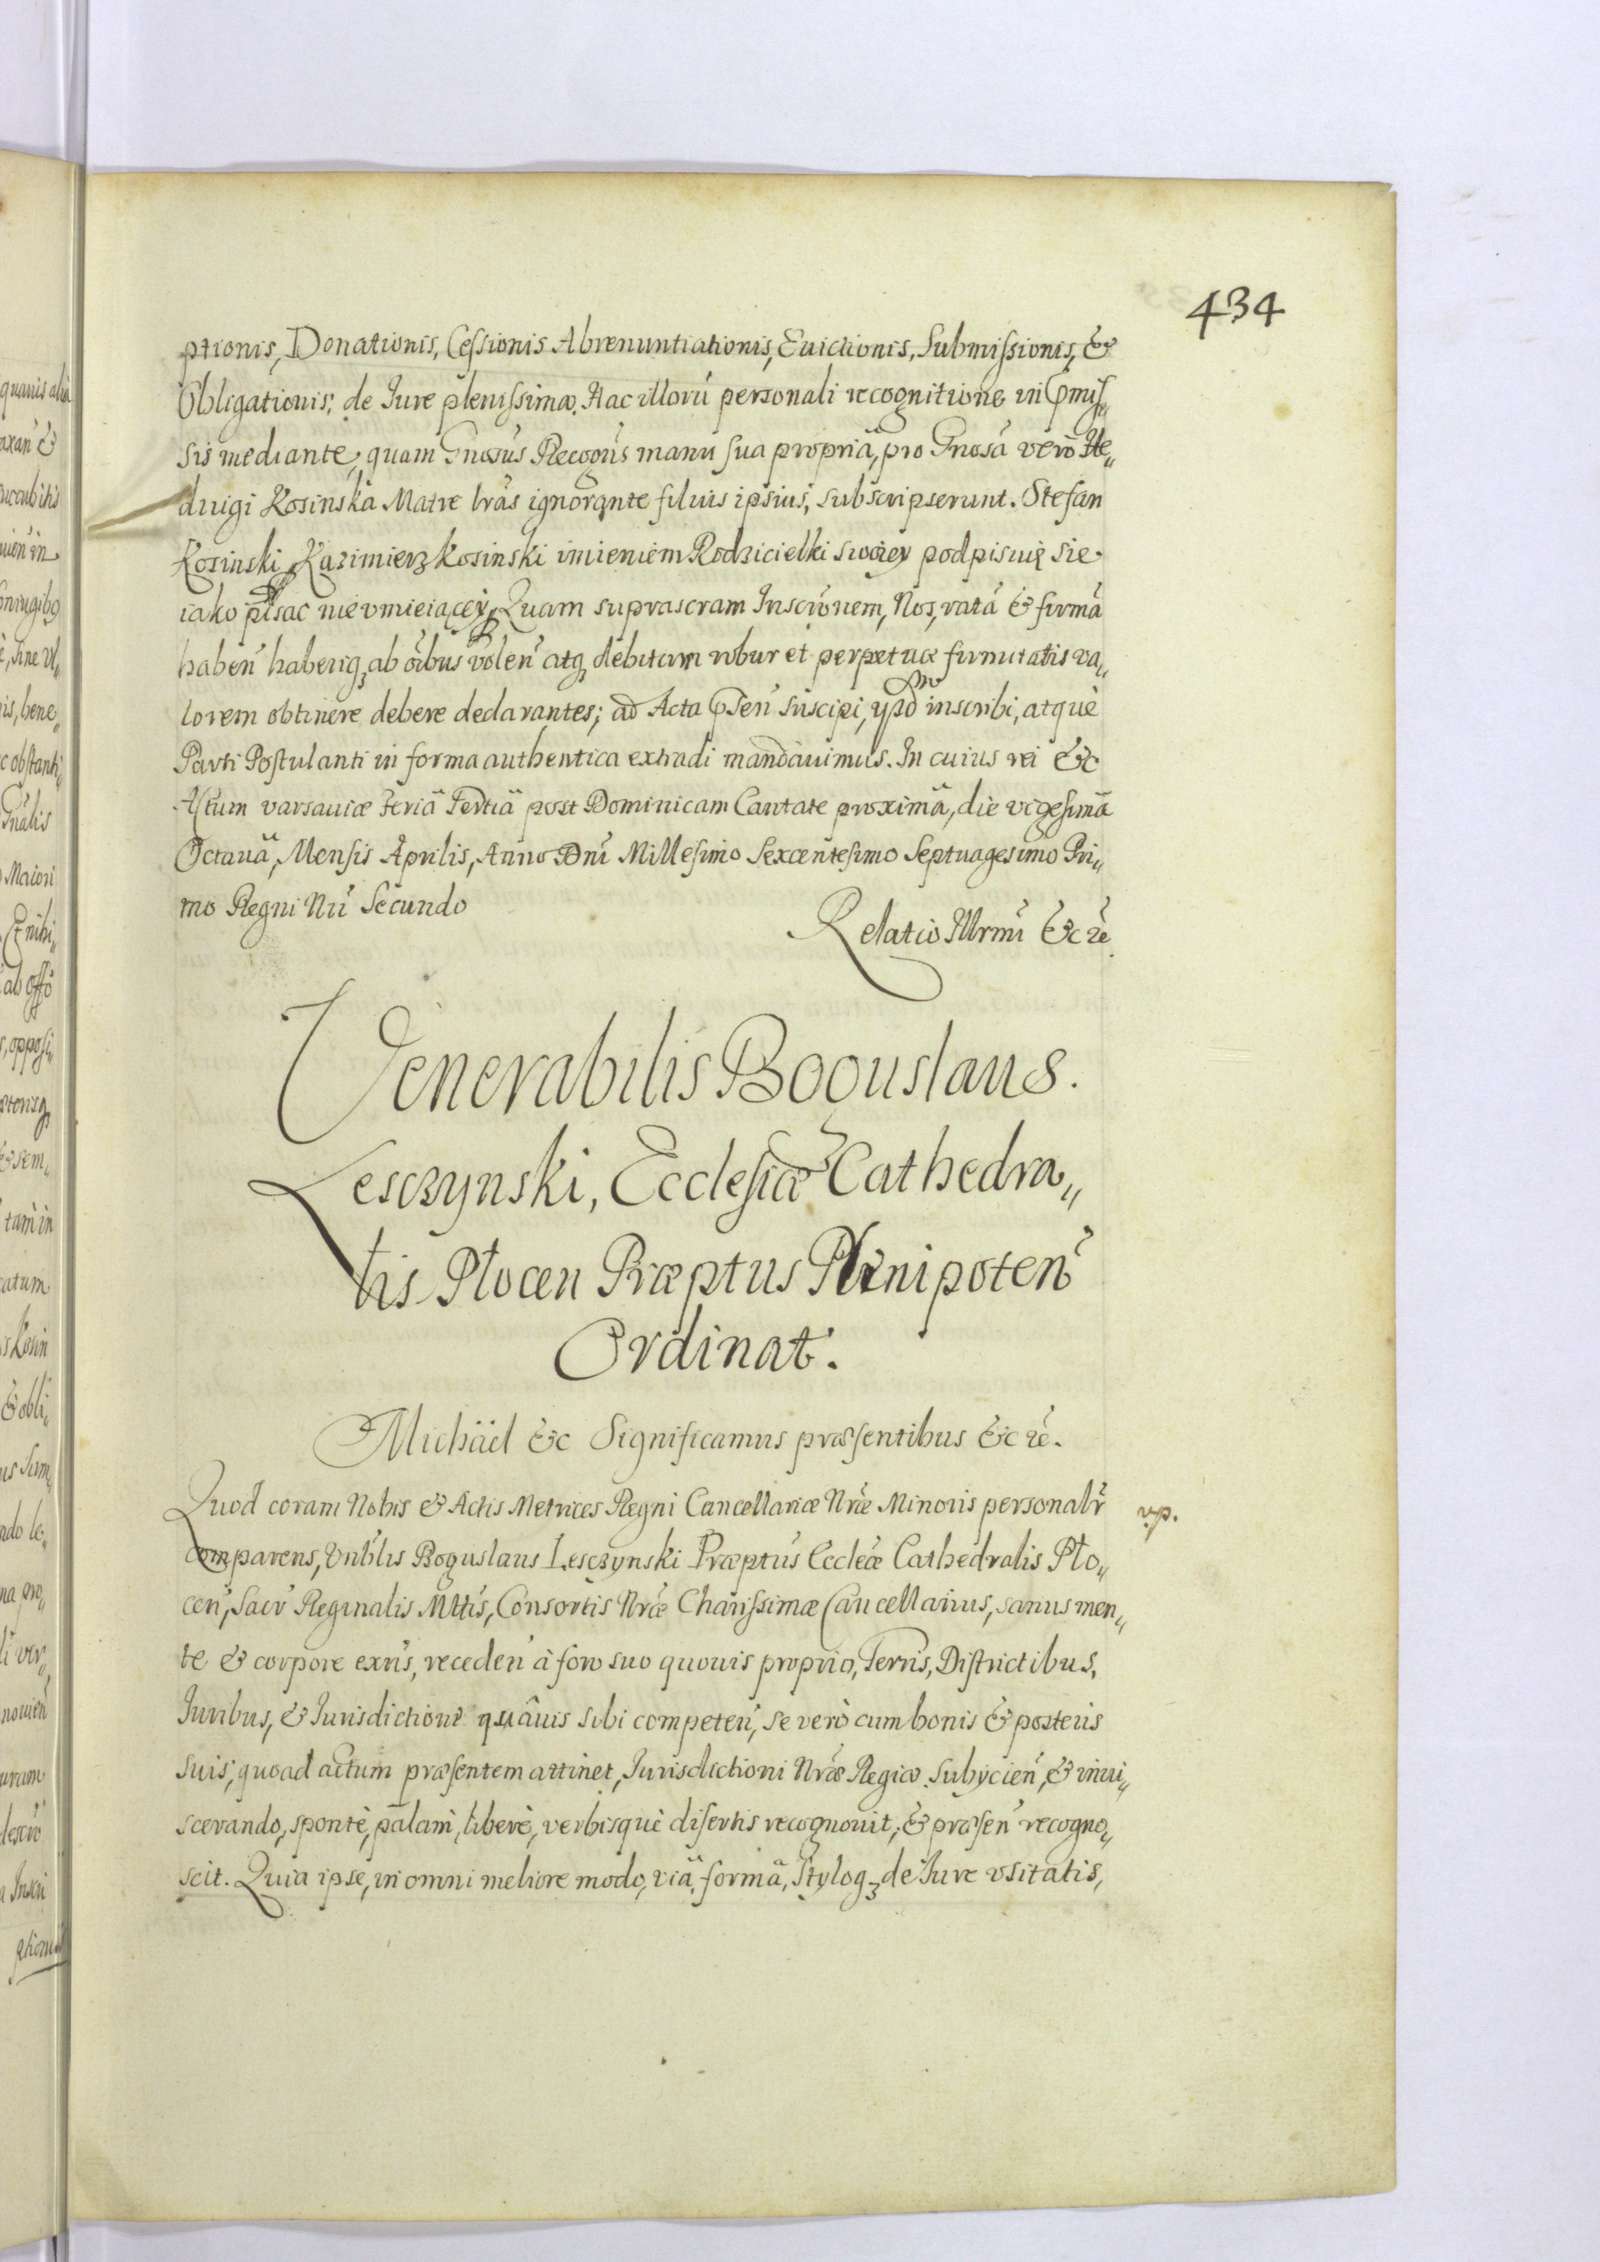 434
ptionis, Donationis, Cessionis Abrenuntiationis, Euictionis, Submissionis, &
Obligationis, de Iure plenissimæ. Hac illorũ personali recognitione in pmis„
sis mediante, quam Gnosus Recogn̄s manu sua propriâ, pro Gnosâ verò He„
duigi Kosinska Matre lrãs ignorante filius ipsius, subscripserunt. Stefan
Kosinski, Kazimierz Kosinski imieniem Rodzicielki swoiey podpisuię sie
iako pisac nie vmieiącey, Quam suprascram Inscrõnem, Nos, ratã & firmã
haben̄ haberiq₃ ab oĩbus volen̄ atq₃ debitum robur et perpetuæ firmitatis va„
lorem obtinere debere declarantes; ad Acta p̄sen̄ suscipi, ysd inscribi, atquè
Parti Postulanti in forma authentica extradi mandauimus. In cuius rei &c
Actum varsauiæ Feriâ Tertiâ post Dominicam Cantate proximâ, die vigesimâ
Octauâ, Mensis Aprilis, Anno Dnĩ Millesimo Sexcentesimo Septuagesimo Pri„
mo Regni Nrĩ Secundo
Relatio Illrmĩ &c ꝛe.
Venerabilis Boguslaus.
Lesczynski, Ecclesiæ Cathedra„
lis Plocen Præptus Plenipoten̄
Ordinat.
Michäel &c Significamus præsentibus &c ꝛe.
Quod coram Nobis & Actis Metrices Regni Cancellariæ Nrẽ Minoris personalr̃
vp.
comparens, Vnb̃lis Boguslaus Lesczynski Præptus Eccleæ Cathedralis Plo„
cen̄, Sacr̃ Reginalis Mttĩs, Consortis Nræ̃ Charissimæ Cancellarius, sanus men„
te & corpore exñs, receden̄ à foro suo quouis proprio, Terris, Districtibus,
Iuribus, & Iurisdictione quâuis sibi competen̄, se verò cum bonis & posteris
suis, quoad actum præsentem attinet, Iurisdictioni Nræ̃ Regiæ subijcien̄, & inui„
scerando, spontè, palàm, liberè, verbisquè disertis recognouit, & præsen̄ recogno„
scit. Quia ipse, in omni meliore modo, viâ, formâ, Styloq₃ de Iure vsitatis,